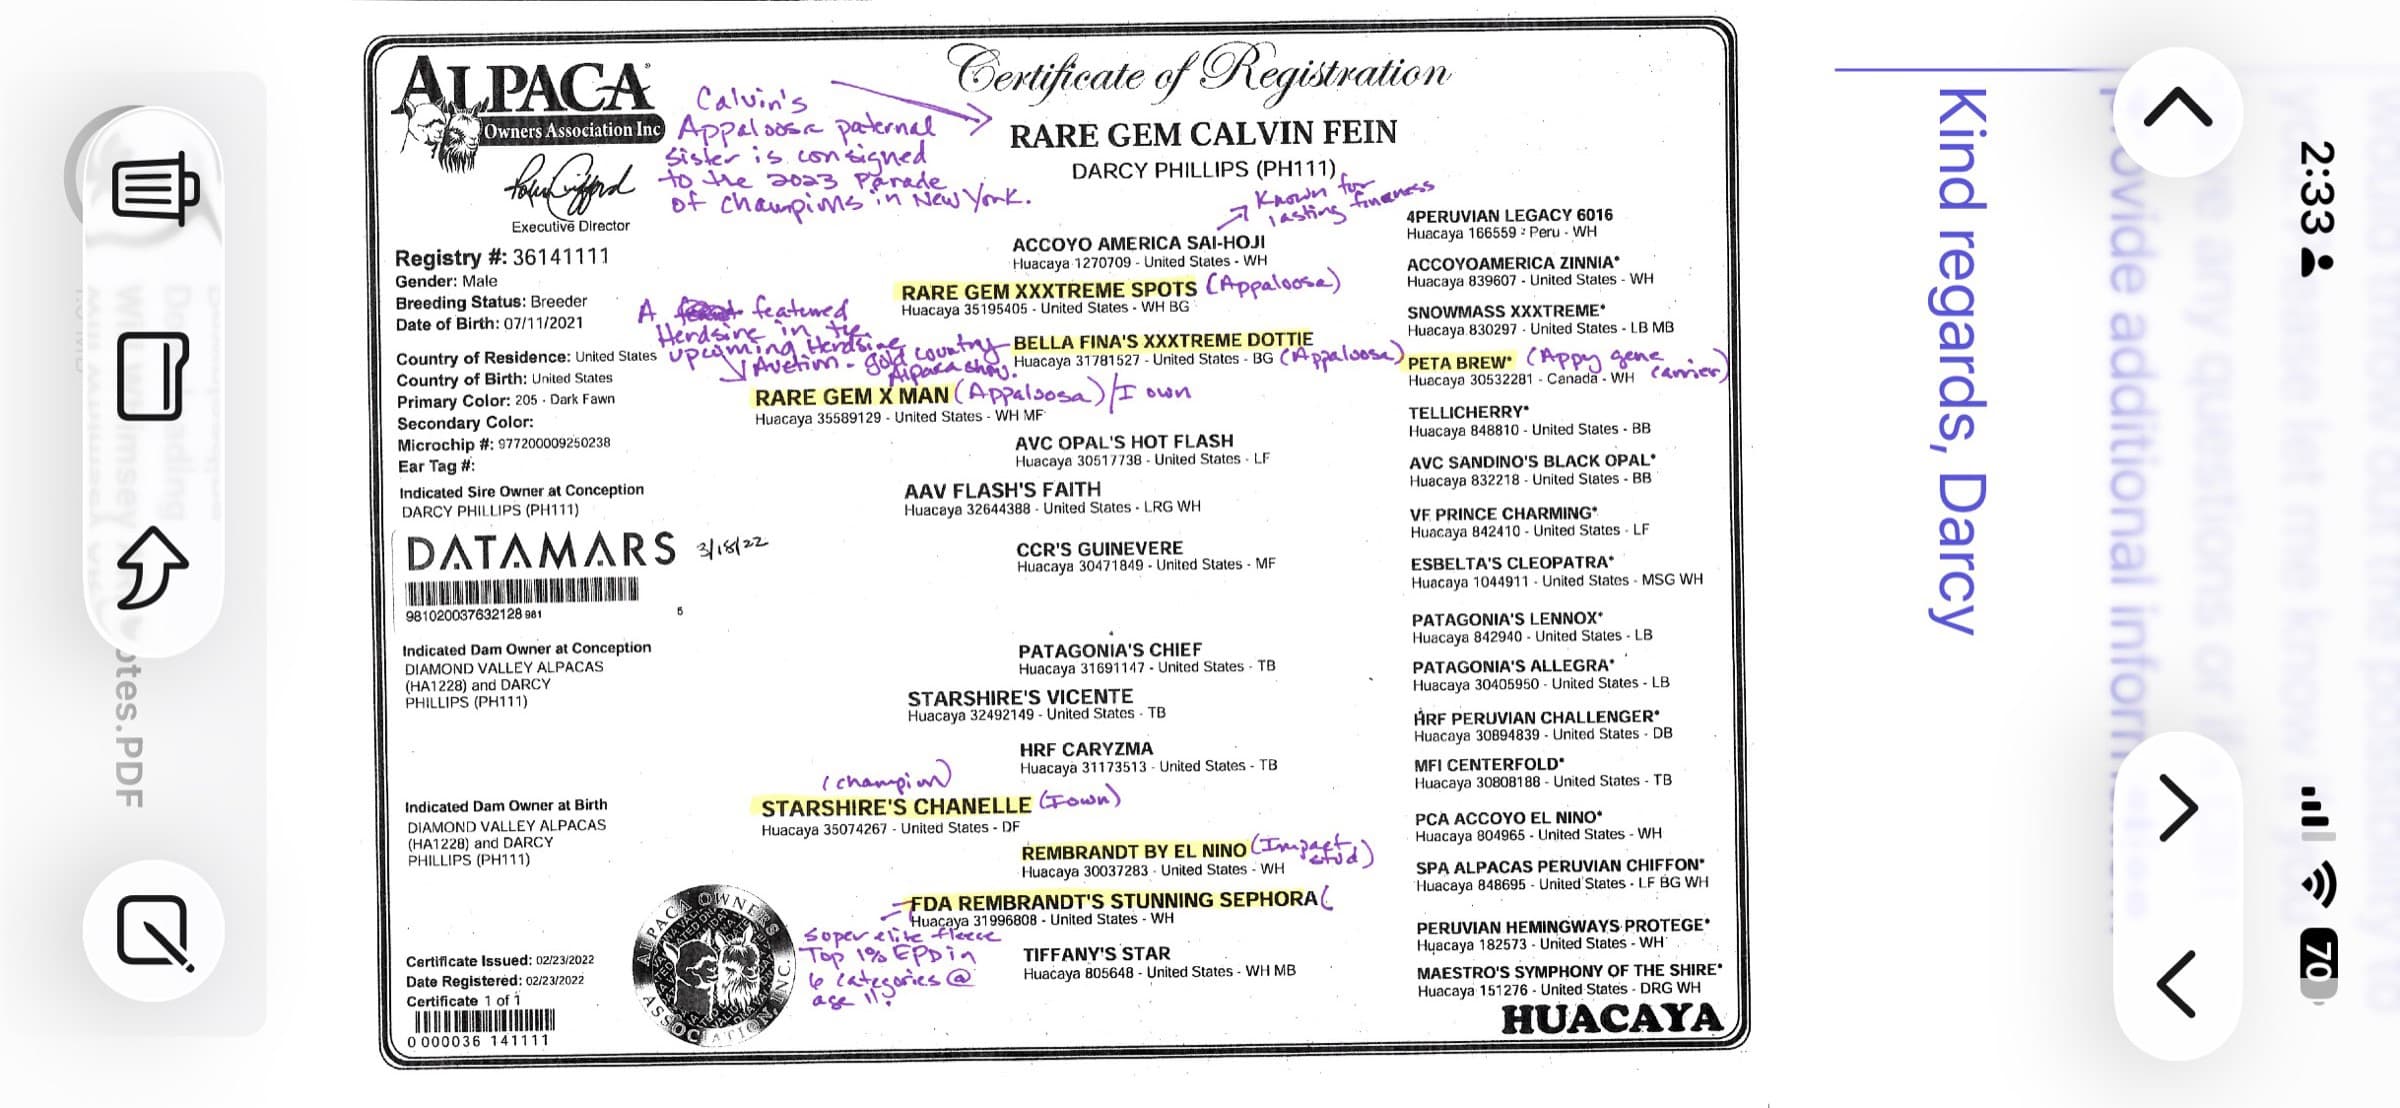 ALPACA
Owners Association Inc
Executive Director
Certificate of Registration
RARE GEM CALVIN FEIN
DARCY PHILLIPS (PH111)
Calvin's
Appaloosa paternal
sister is consigned
to the 2023 Parade
of Champions in New York.
Registry #: 36141111
Gender: Male
Breeding Status: Breeder
Date of Birth: 07/11/2021
Country of Residence: United States
Country of Birth: United States
Primary Color: 205 - Dark Fawn
Secondary Color:
Microchip #: 977200009250238
Ear Tag #:
Indicated Sire Owner at Conception
DARCY PHILLIPS (PH111)
DATAMARS 3/18/22
981020037632128 981
6
Indicated Dam Owner at Conception
DIAMOND VALLEY ALPACAS
(HA1228) and DARCY
PHILLIPS (PH111)
Indicated Dam Owner at Birth
DIAMOND VALLEY ALPACAS
(HA1228) and DARCY
PHILLIPS (PH111)
Certificate Issued: 02/23/2022
Date Registered: 02/23/2022
Certificate 1 of 1
0 000036 141111
A featured
Herdsire in the
upcoming Herdsire
Auction - gold country
Alpaca show.
RARE GEM X MAN (Appaloosa)/I own
Huacaya 35589129 - United States - WH MF
(champion)
STARSHIRE'S CHANELLE (I own)
Huacaya 35074267 - United States - DF
RARE GEM XXXTREME SPOTS (Appaloosa)
Huacaya 35195405 - United States - WH BG
AAV FLASH'S FAITH
Huacaya 32644388 - United States - LRG WH
STARSHIRE'S VICENTE
Huacaya 32492149 - United States - TB
FDA REMBRANDT'S STUNNING SEPHORA (
Huacaya 31996808 - United States - WH
Super elite fleece
Top 1% EPD in
6 categories @
age 11!
Known for
lasting fineness
ACCOYO AMERICA SAI-HOJI
Huacaya 1270709 - United States - WH
BELLA FINA'S XXXTREME DOTTIE
Huacaya 31781527 - United States - BG (Appaloosa)
AVC OPAL'S HOT FLASH
Huacaya 30517738 - United States - LF
CCR'S GUINEVERE
Huacaya 30471849 - United States - MF
PATAGONIA'S CHIEF
Huacaya 31691147 - United States - TB
HRF CARYZMA
Huacaya 31173513 - United States - TB
REMBRANDT BY EL NINO (Impact stud)
Huacaya 30037283 - United States - WH
TIFFANY'S STAR
Huacaya 805648 - United States - WH MB
4PERUVIAN LEGACY 6016
Huacaya 166559 - Peru - WH
ACCOYOAMERICA ZINNIA*
Huacaya 839607 - United States - WH
SNOWMASS XXXTREME*
Huacaya 830297 - United States - LB MB
PETA BREW* (Appy gene carrier)
Huacaya 30532281 - Canada - WH
TELLICHERRY*
Huacaya 848810 - United States - BB
AVC SANDINO'S BLACK OPAL*
Huacaya 832218 - United States - BB
VF PRINCE CHARMING*
Huacaya 842410 - United States - LF
ESBELTA'S CLEOPATRA*
Huacaya 1044911 - United States - MSG WH
PATAGONIA'S LENNOX*
Huacaya 842940 - United States - LB
PATAGONIA'S ALLEGRA*
Huacaya 30405950 - United States - LB
HRF PERUVIAN CHALLENGER*
Huacaya 30894839 - United States - DB
MFI CENTERFOLD*
Huacaya 30808188 - United States - TB
PCA ACCOYO EL NINO*
Huacaya 804965 - United States - WH
SPA ALPACAS PERUVIAN CHIFFON*
Huacaya 848695 - United States - LF BG WH
PERUVIAN HEMINGWAYS PROTEGE*
Huacaya 182573 - United States - WH
MAESTRO'S SYMPHONY OF THE SHIRE*
Huacaya 151276 - United States - DRG WH
HUACAYA
ALPACA OWNERS ASSOCIATION, INC.
Kind regards, Darcy
provide additional inform
any questions or if
let me know
otes.PDF
2:33
70